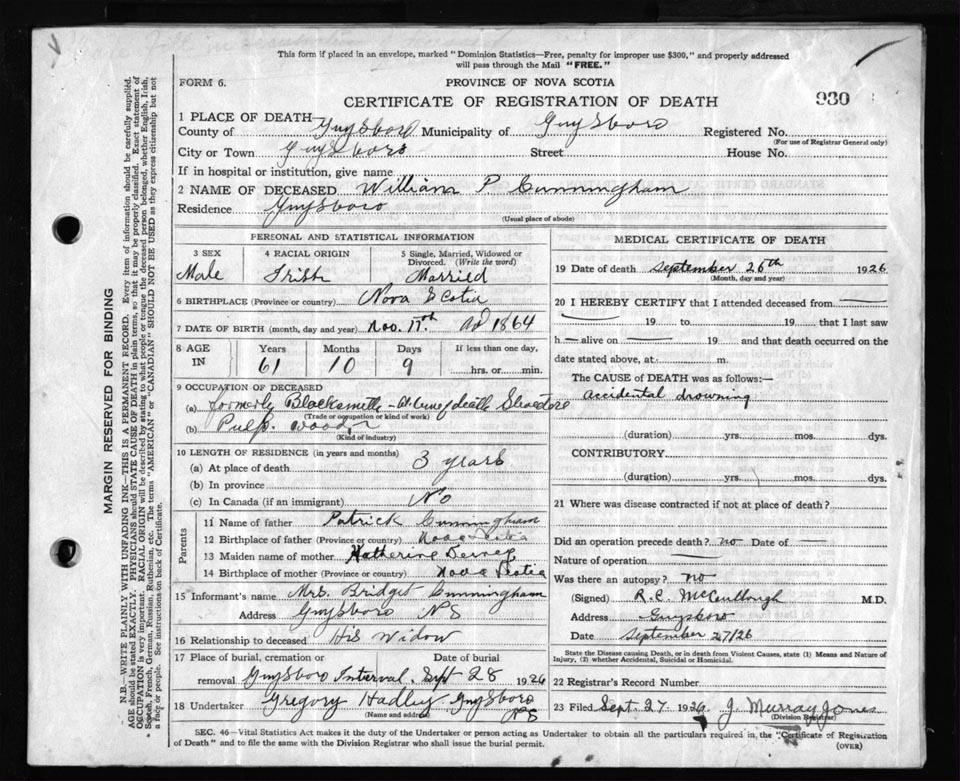 This form if placed in an envelope, marked "Dominion Statistics—Free, penalty for improper use $300," and properly addressed
will pass through the Mail "FREE."
FORM 6.
PROVINCE OF NOVA SCOTIA
CERTIFICATE OF REGISTRATION OF DEATH
930
1 PLACE OF DEATH—
County of Guysboro Municipality of Guysboro Registered No.
(For use of Registrar General only)
City or Town Guysboro Street House No.
If in hospital or institution, give name
2 NAME OF DECEASED William P Cunningham
Residence Guysboro
(Usual place of abode)
PERSONAL AND STATISTICAL INFORMATION
3 SEX 4 RACIAL ORIGIN 5 Single, Married, Widowed or Divorced. (Write the word)
Male Irish Married
6 BIRTHPLACE (Province or country) Nova Scotia
7 DATE OF BIRTH (month, day and year) Nov. 17th AD 1864
8 AGE IN Years Months Days If less than one day,
61 10 9 hrs. or min.
9 OCCUPATION OF DECEASED
(a) formerly Blacksmith - at time of death Stevedore
(Trade or occupation or kind of work)
(b) Pulp wood
(Kind of industry)
10 LENGTH OF RESIDENCE (in years and months)
(a) At place of death 3 years
(b) In province
(c) In Canada (if an immigrant) No
Parents
11 Name of father Patrick Cunningham
12 Birthplace of father (Province or country) Nova Scotia
13 Maiden name of mother Katherine
14 Birthplace of mother (Province or country) Nova Scotia
15 Informant's name Mrs. Bridget Cunningham
Address Guysboro NS
16 Relationship to deceased His Widow
17 Place of burial, cremation or Date of burial
removal Guysboro Interval. Sept 28 1926
18 Undertaker Gregory Hadley Guysboro NS
(Name and address)
MEDICAL CERTIFICATE OF DEATH
19 Date of death September 26th 1926
(Month, day and year)
20 I HEREBY CERTIFY that I attended deceased from
19 to 19 that I last saw
h alive on 19 and that death occurred on the
date stated above, at m.
The CAUSE OF DEATH was as follows:—
accidental drowning
(duration) yrs. mos. dys.
CONTRIBUTORY
(duration) yrs. mos. dys.
21 Where was disease contracted if not at place of death?
Did an operation precede death? no Date of
Nature of operation
Was there an autopsy? no
(Signed) R.C. McCullough M.D.
Address Guysboro
Date September 27/26
State the Disease causing Death, or in death from Violent Causes, state (1) Means and Nature of
Injury, (2) whether Accidental, Suicidal or Homicidal.
22 Registrar's Record Number
23 Filed Sept. 27 1926 J. Murray Jones
(Division Registrar)
SEC. 46—Vital Statistics Act makes it the duty of the Undertaker or person acting as Undertaker to obtain all the particulars required in, the "Certificate of Registration
of Death" and to file the same with the Division Registrar who shall issue the burial permit.
(OVER)
MARGIN RESERVED FOR BINDING
N.B.—WRITE PLAINLY WITH UNFADING INK—THIS IS A PERMANENT RECORD. Every item of information should be carefully supplied.
AGE should be stated EXACTLY. PHYSICIANS should STATE CAUSE OF DEATH in plain terms, so that it may be properly classified. Exact statement of
OCCUPATION is very important. RACIAL ORIGIN will be described by stating to what people or tongue the deceased person belonged, whether English, Irish,
Scotch, French, German, Russian, Ruthenian, etc. The terms "AMERICAN" or "CANADIAN" SHOULD NOT BE USED as they express citizenship but not
a race or people. See instructions on back of Certificate.